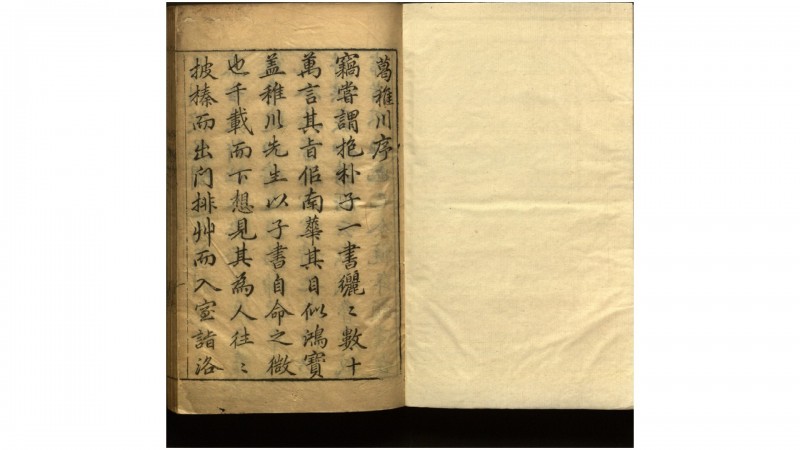 葛稚川序
竊嘗謂抱朴子一書纚〻數十
萬言其旨侣南華其目似鴻寶
盖稚川先生以子書自命之微
也千載而下想見其為人往〻
披榛而出門排艸而入室詣洛